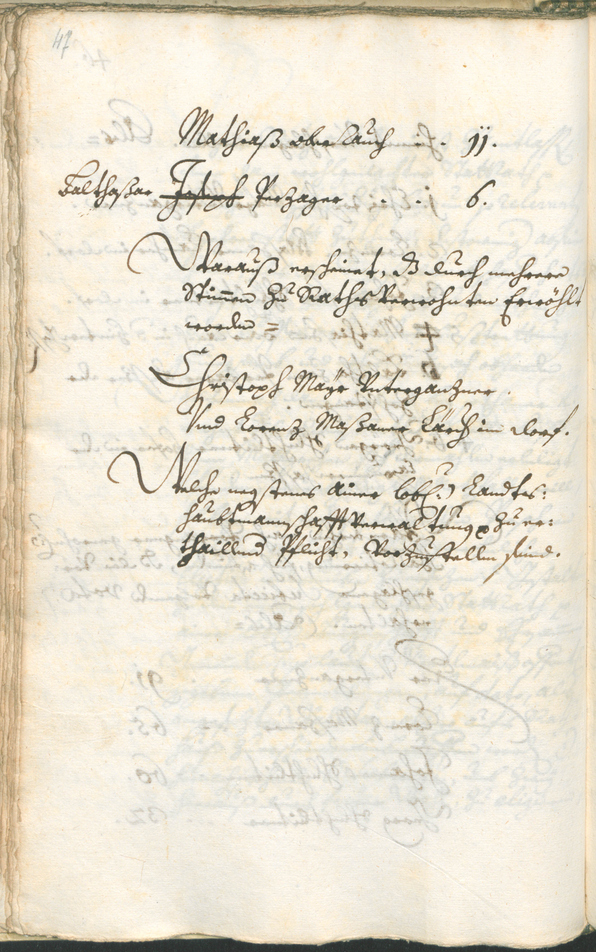 47
Mathiaß oberlauch 11.
Balthaßar Joseph Perzager . . . 6.
Warauß erscheinet, dß durch mehrere
Stimmen zu Raths Verwohnten Erwöhlt
worden =
Christoph Mayr Unterganzner.
Und Lorenz Maßaner Lärch im Dorf.
Welche negstens ainer lobl: Landts:
haubtmannschafft Verwaltung zu er:
thaillend Pflicht, Vorzustellen sind.